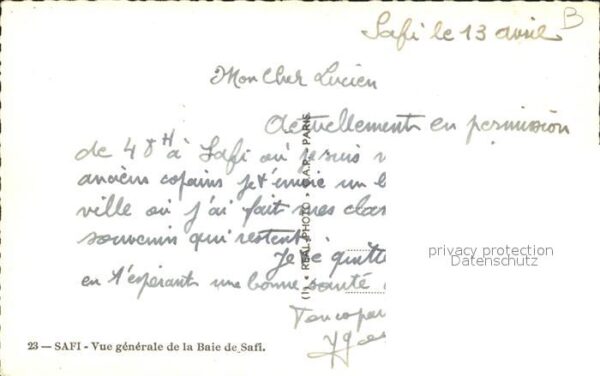 B
Safi le 13 avril
Mon Cher Lucien
Actuellement en permission
de 48H à Safi où je suis
anciens copains je t'envoie un
ville où j'ai fait mes
souvenirs qui restent.
Je te quitte
en t'espérant une bonne santé
Ton
(I) « REAL-PHOTO » C.A.P. - PARIS
privacy protection
Datenschutz
23 — SAFI - Vue générale de la Baie de Safi.